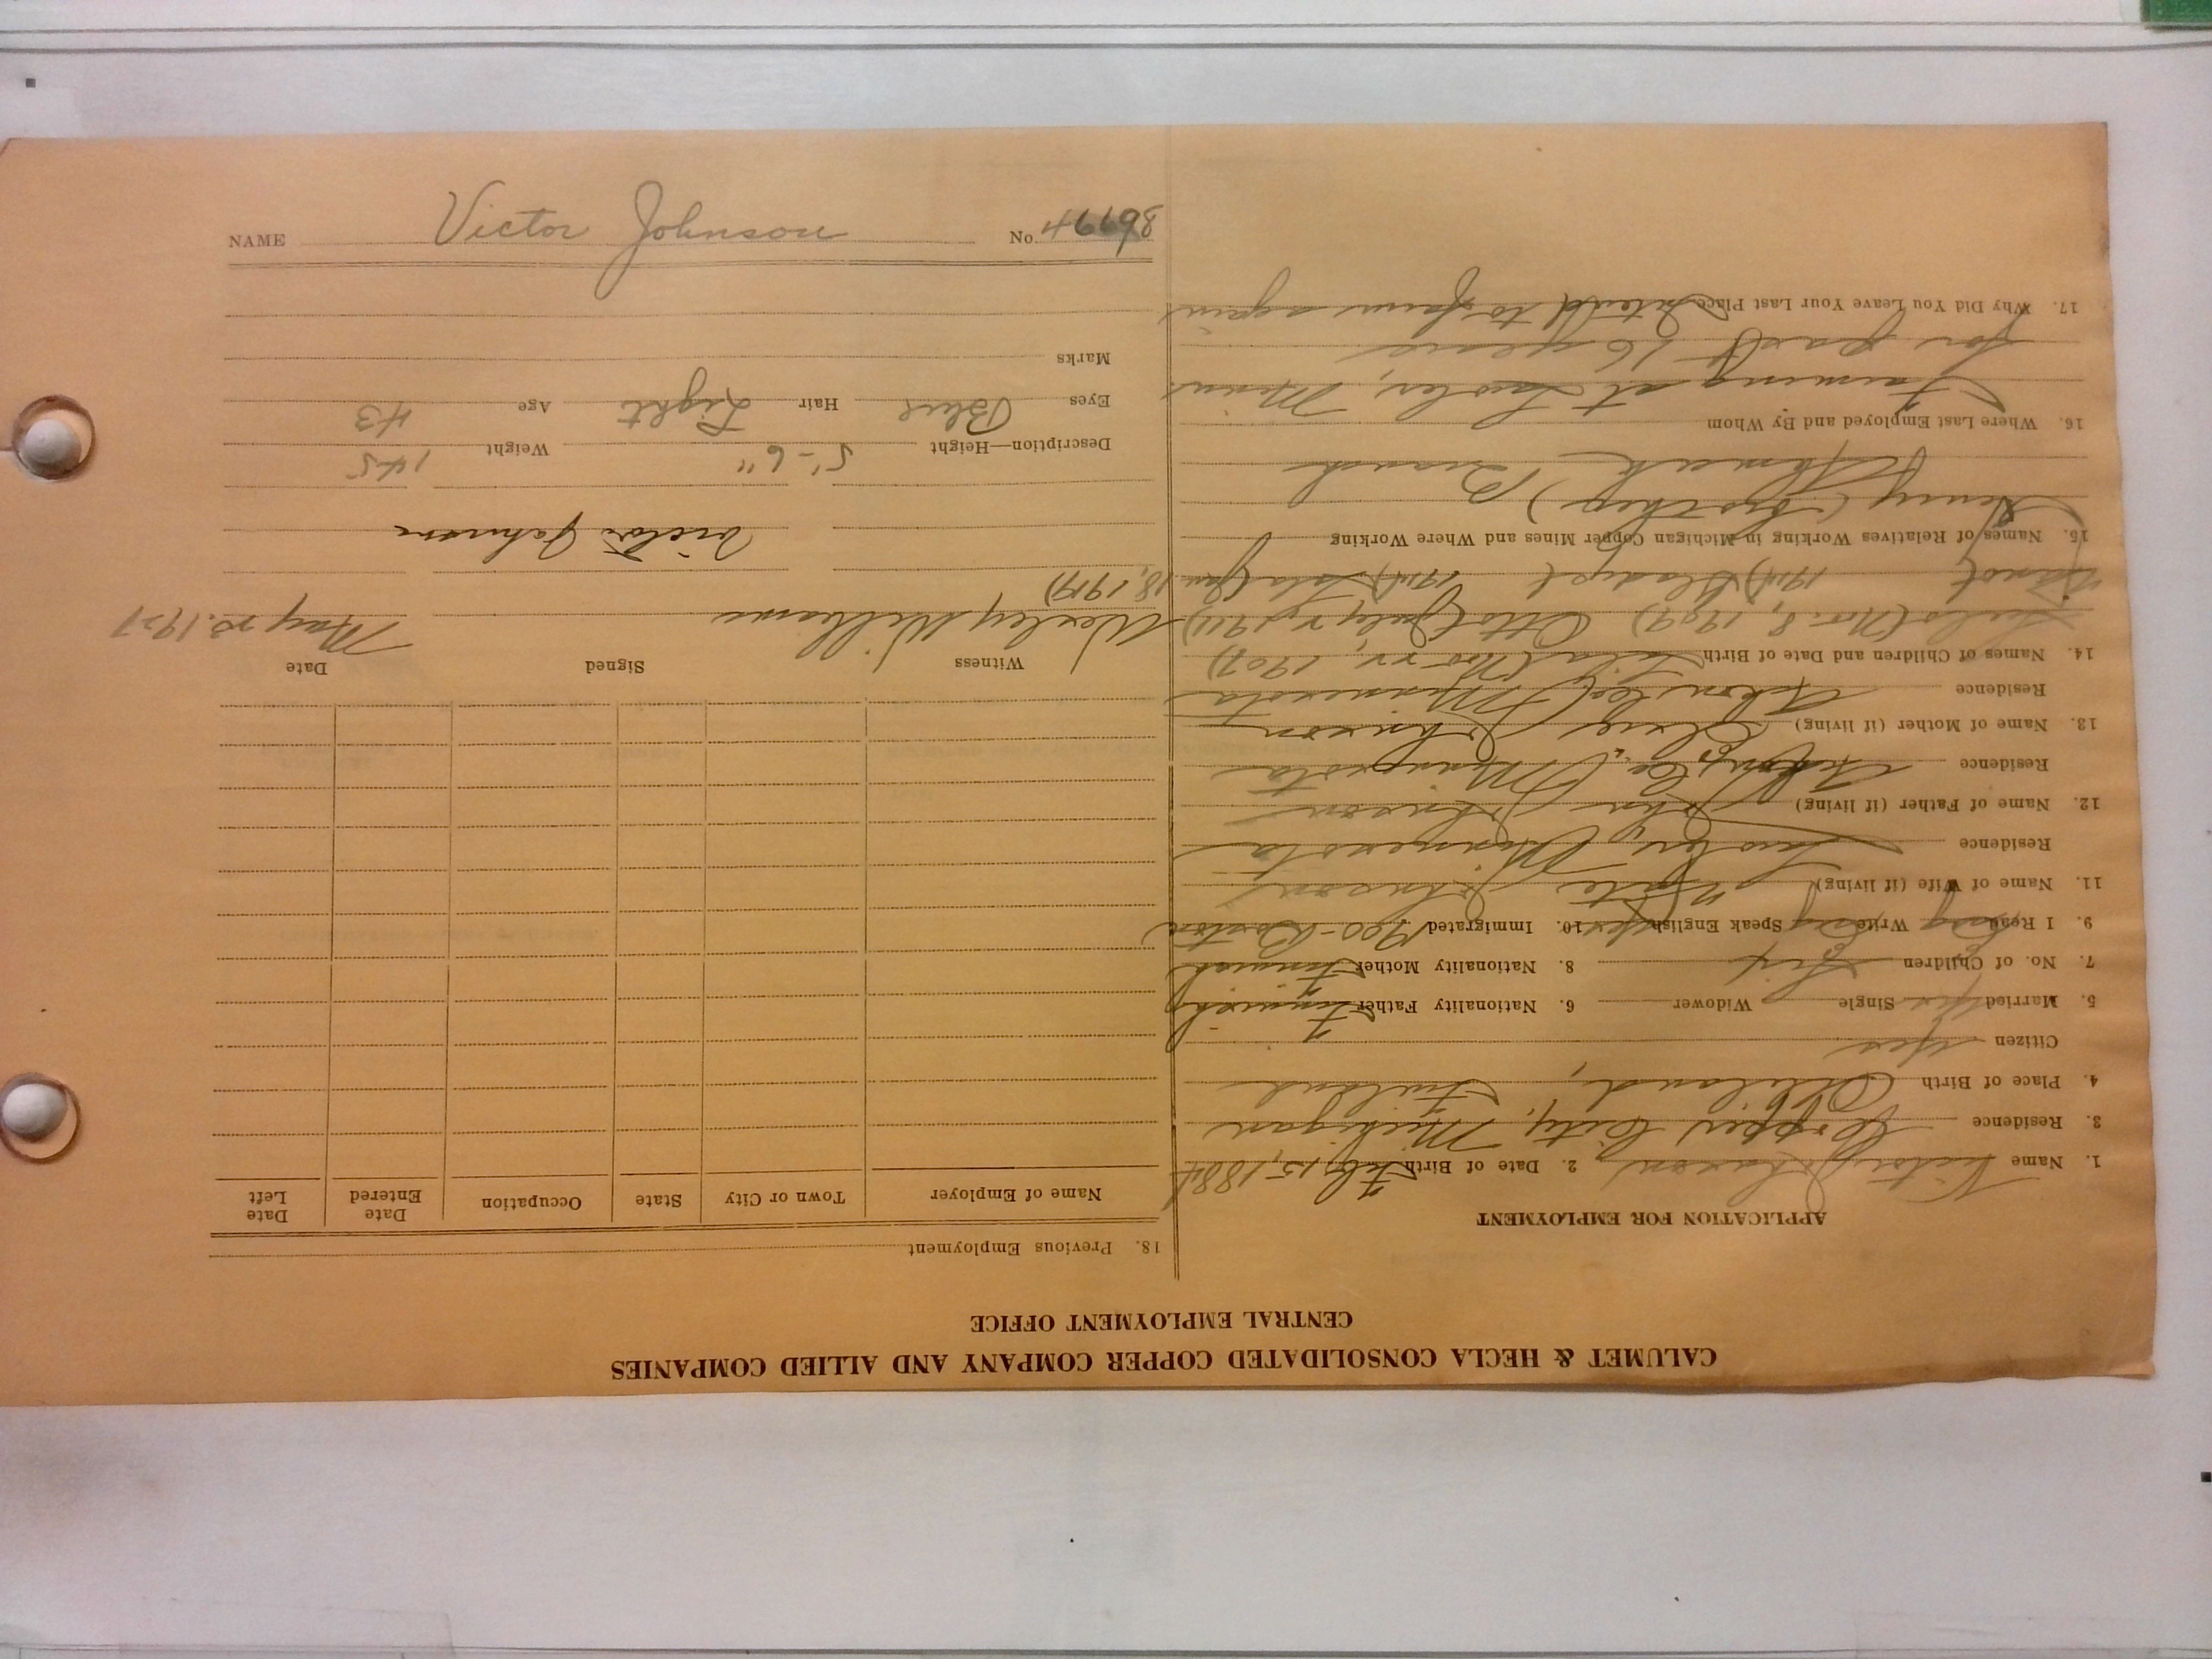 CALUMET & HECLA CONSOLIDATED COPPER COMPANY AND ALLIED COMPANIES
CENTRAL EMPLOYMENT OFFICE
APPLICATION FOR EMPLOYMENT
1. Name Victor Johnson 2. Date of Birth Feb, 15, 1884
3. Residence Copper City, Michigan
4. Place of Birth Finland
Citizen Yes
5. Married Yes Single Widower 6. Nationality Father Finnish
7. No. of Children Six 8. Nationality Mother Finnish
9. I Read Eng Write Eng Speak English Yes 10. Immigrated 1900-Boston
11. Name of Wife (if living) Kate Johnson
Residence Lawler, Minnesota
12. Name of Father (if living) John Johnson
Residence Minnesota
13. Name of Mother (if living) Johnson
Residence Minnesota
14. Names of Children and Date of Birth Lila (Nov 22, 1907)
(Nov. 8, 1909) Otto (July 1911)
Gladys (Jan.
18, 1919)
15. Names of Relatives Working in Michigan Copper Mines and Where Working
Henry (brother)
Ahmeek
16. Where Last Employed and By Whom
Farming at Lawler, Minn
for past 16 years
17. Why Did You Leave Your Last Place Intend to farm again
18. Previous Employment
Name of Employer Town or City State Occupation Date Entered Date Left
Witness Signed Date
Wesley Williams May 23, 1927
Victor Johnson
Description—Height 5'-6" Weight 145
Eyes Blue Hair Light Age 43
Marks
NAME Victor Johnson No. 46698